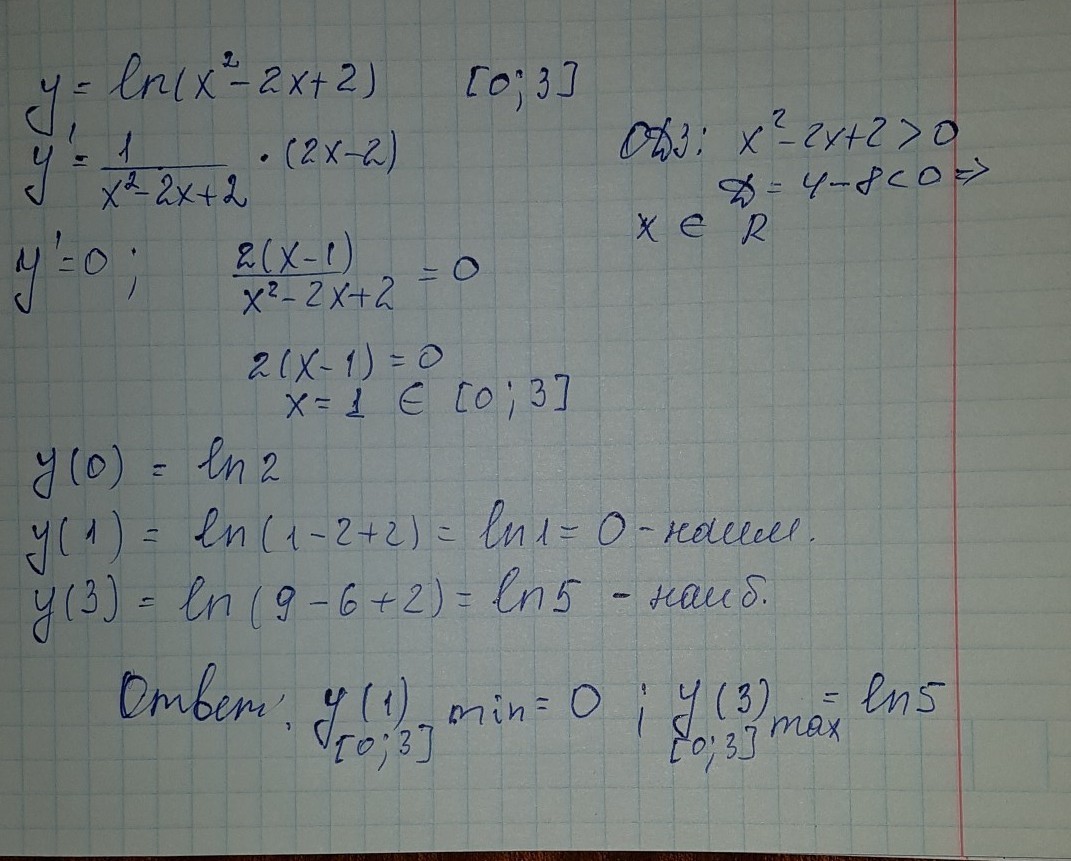 y = ln(x²-2x+2) [0;3]
y' = 1/(x²-2x+2) · (2x-2)
ОДЗ: x²-2x+2>0
D = 4-8<0 ⇒
x ∈ R
y'=0; 2(x-1)/(x²-2x+2) = 0
2(x-1) = 0
x = 1 ∈ [0;3]
y(0) = ln2
y(1) = ln(1-2+2) = ln1 = 0 - наим.
y(3) = ln(9-6+2) = ln5 - наиб.
Ответ: y(1) min = 0 ; y(3) max = ln5
[0;3] [0;3]